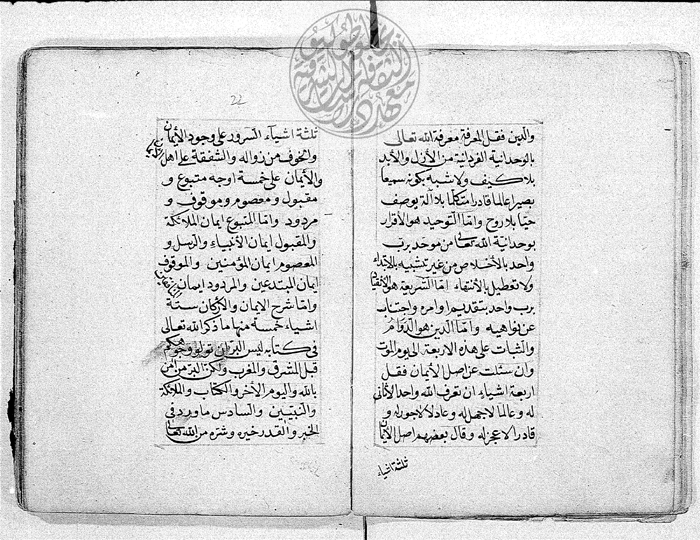 والدين فقل المعرفة معرفة الله تعالى
بالوحدانية الفردانية من الأزل والأبد
بلا كيف ولا شبه بكونه سميعا
بصيرا عالما قادرا متكلما بلا آلة يوصف
حيا بلا روح واما التوحيد هو الأقرار
بوحدانية الله تعالى من موحد برب
واحد بالأخلاص من غير تشبيه بالأبتداء
ولا تعطيل بالأنتهاء اما الشريعة هو الأنقياد
برب واحد بتقديم اوامره واجتناب
عن نواهيه واما الدين هو الدوام
والثبات على هذه الاربعة الى يوم الموت
وان سئلت عن اصل الأيمان فقل
اربعة اشياء ان تعرف الله واحد الأثاني
له وعالما لا جهل له وعادلا لا جور له و
قادرا لا عجز له وقال بعضهم اصل الأيمان
ثلثة اشياء
22
ثلثة اشياء السرور على وجود الأيمان
والخوف من زواله والشفقة على اهل
والأيمان على خمسة اوجه متبوع و
مقبول ومعصوم وموقوف و
مردود واما المتبوع ايمان الملائكة
والمقبول ايمان الأنبياء والرسل و
المعصوم ايمان المؤمنين والموقوف
ايمان المبتدعين والمردود ايمان
واما شرح الايمان والأركان ستة
اشياء خمسة منها ما ذكر الله تعالى
في كتابه ليس البر ان تولوا وجوهكم
قبل المشرق والمغرب ولكن البر من امن
بالله واليوم الأخر والكتاب والملائكة
والنبيين والسادس ما ورد في
الخبر والقدر خيره وشره من الله تعالى